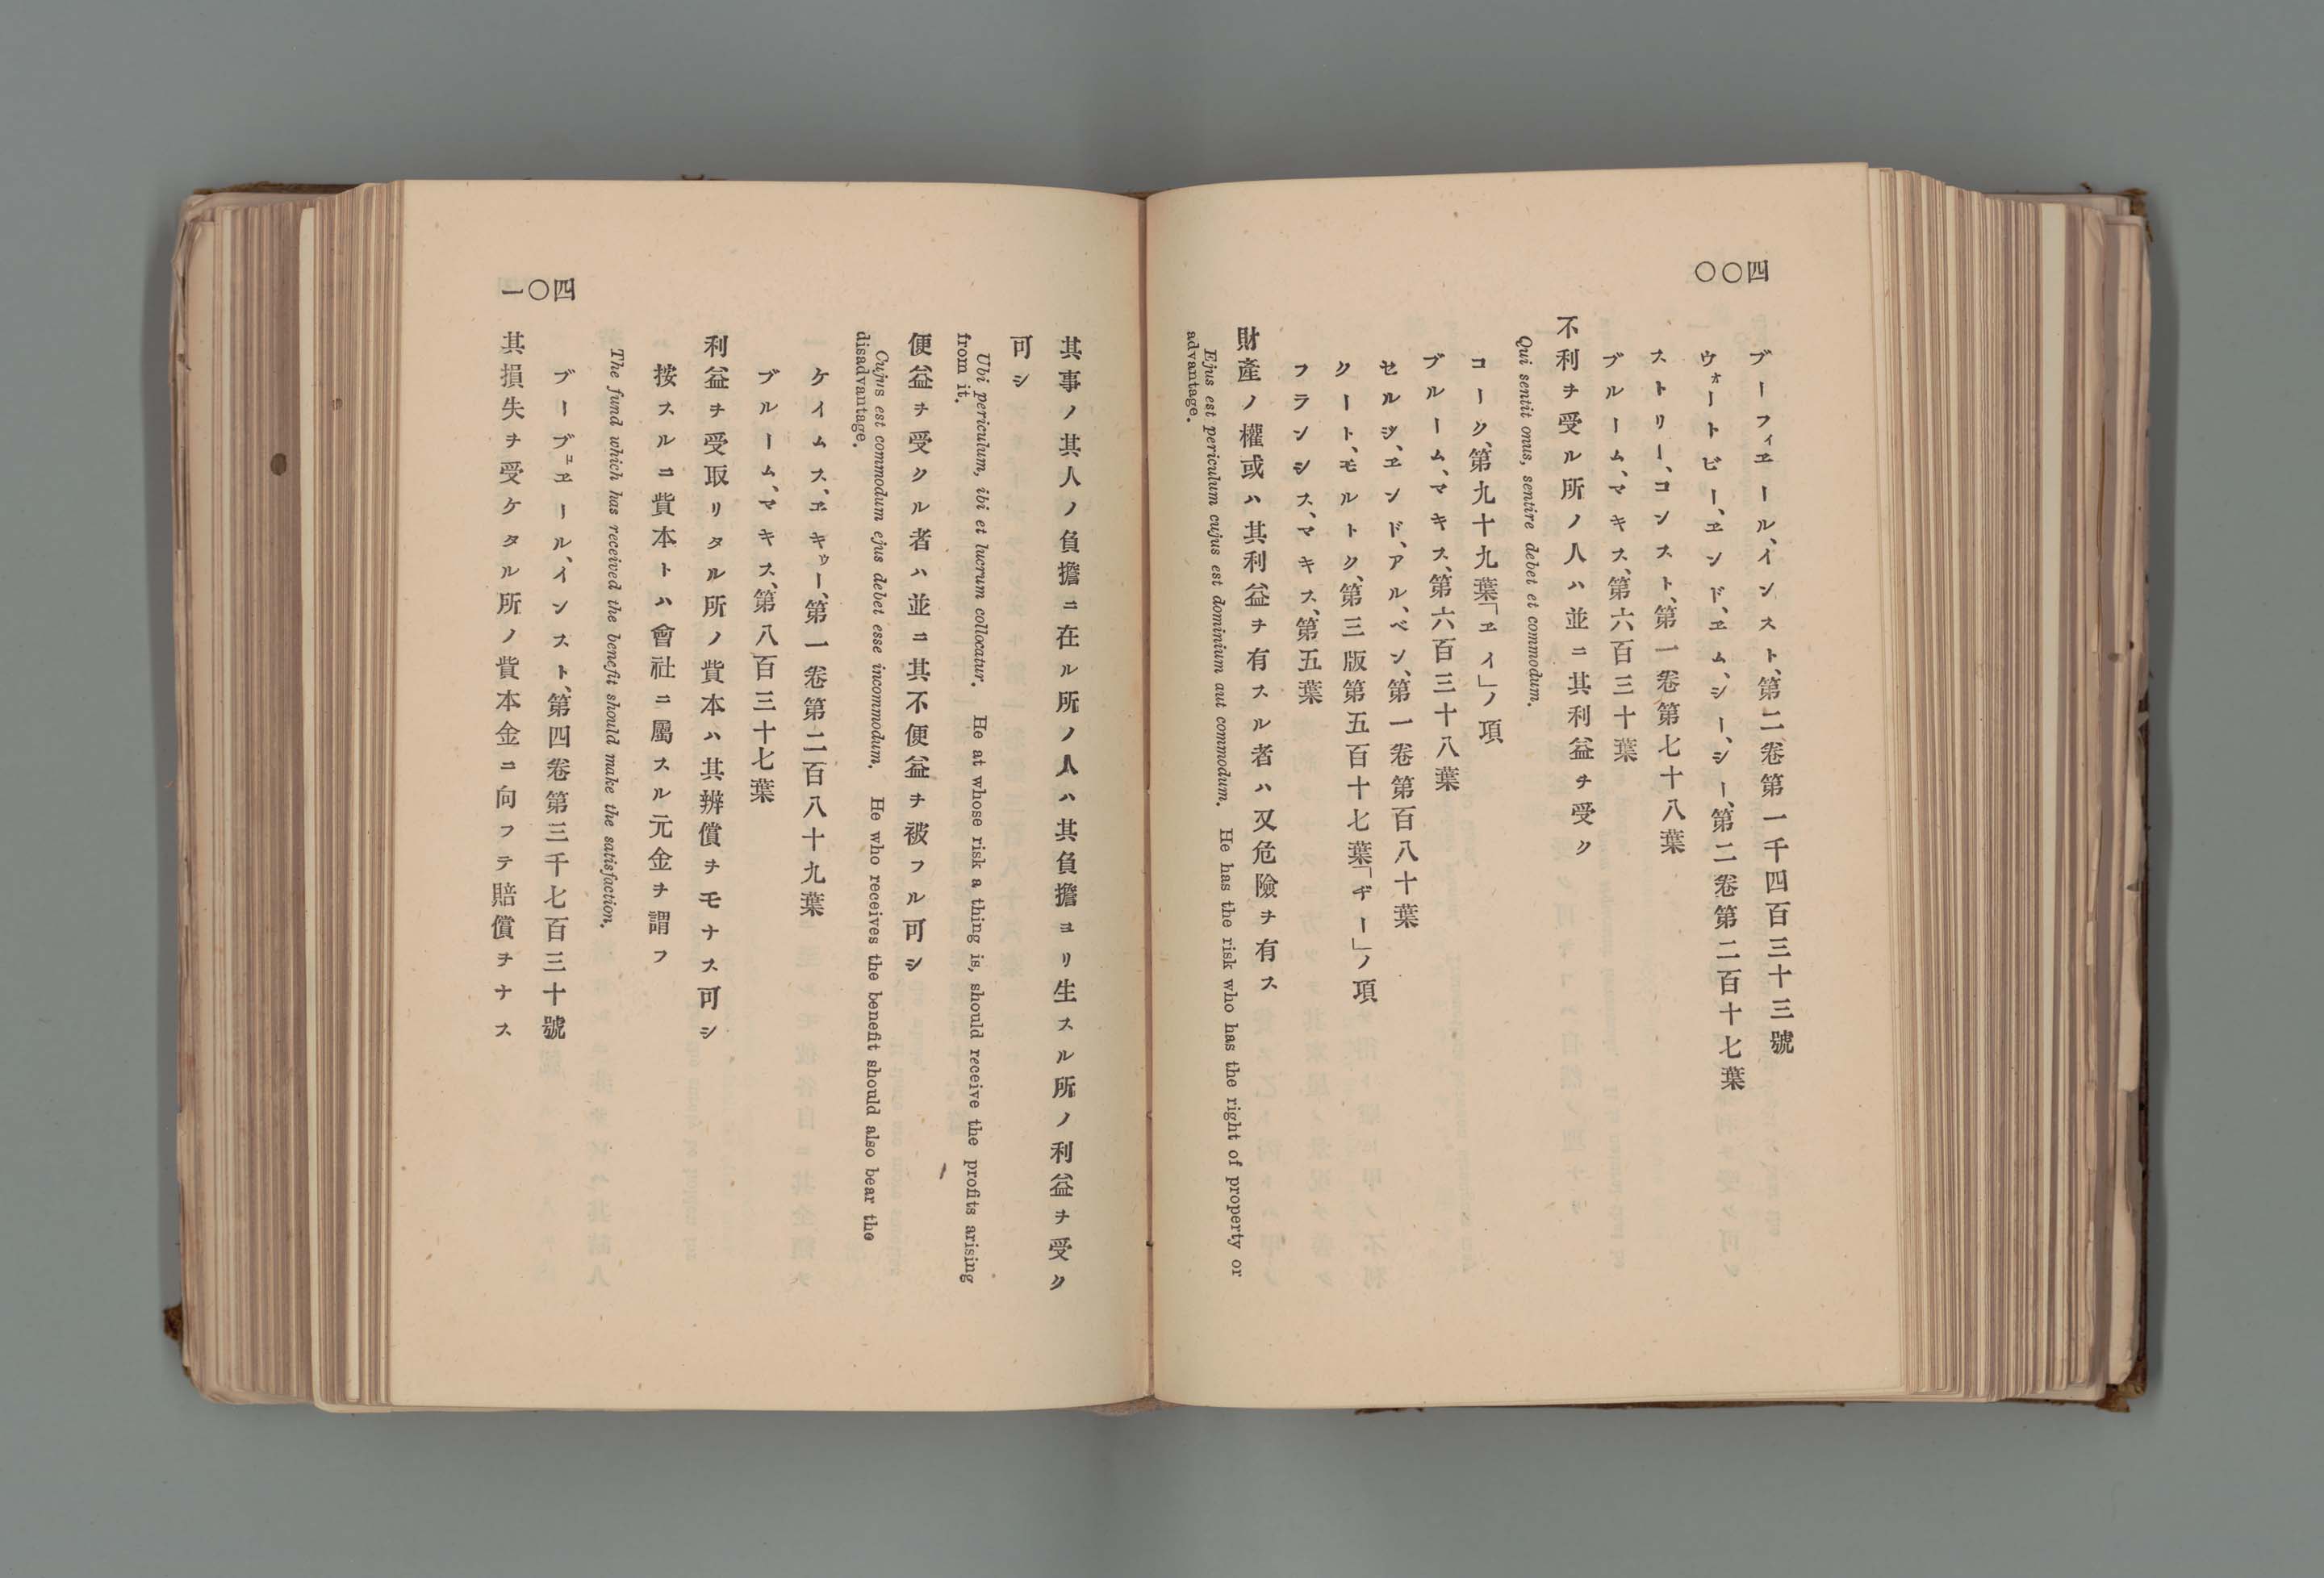 四〇〇
ブーフィエール、インスト、第二卷第一千四百三十三號
ウォートビー、ヱンド、ヱム、シー、シー、第二卷第二百十七葉
ストリー、コンスト、第一卷第七十八葉
ブルーム、マキス、第六百三十葉
不利ヲ受ル所ノ人ハ並ニ其利益ヲ受ク
Qui sentit onus, sentire debet et commodum.
コーク、第九十九葉「ヱイ」ノ項
ブルーム、マキス、第六百三十八葉
セルジ、ヱンド、アル、ベン、第一卷第百八十葉
クート、モルトク、第三版第五百十七葉「ヂー」ノ項
フランシス、マキス、第五葉
財產ノ權或ハ其利益ヲ有スル者ハ又危險ヲ有ス
Ejus est periculum cujus est dominium aut commodum. He has the risk who has the right of property or
advantage.
四〇一
其事ノ其人ノ負擔ニ在ル所ノ人ハ其負擔ヨリ生スル所ノ利益ヲ受ク
可シ
Ubi periculum, ibi et lucrum collocatur. He at whose risk a thing is, should receive the profits arising
from it.
便益ヲ受クル者ハ並ニ其不便益ヲ被フル可シ
Cujus est commodum ejus debet esse incommodum. He who receives the benefit should also bear the
disadvantage.
ケイムス、ヱキウー、第一卷第二百八十九葉
ブルーム、マキス、第八百三十七葉
利益ヲ受取リタル所ノ貲本ハ其辨償ヲモナス可シ
按スルニ貲本トハ會社ニ屬スル元金ヲ謂フ
The fund which has received the benefit should make the satisfaction.
ブーブュヱール、インスト、第四卷第三千七百三十號
其損失ヲ受ケタル所ノ貲本金ニ向フテ賠償ヲナス